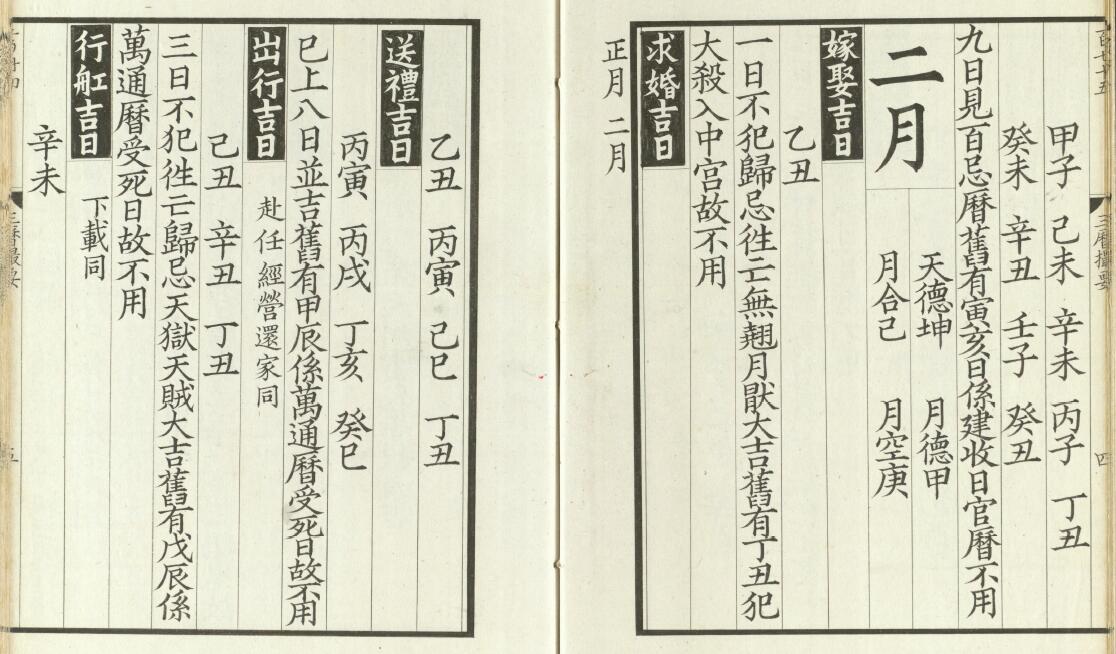 甲子 己未 辛未 丙子 丁丑
癸未 辛丑 壬子 癸丑
九日見百忌曆舊有寅亥日係建收日官曆不用
二月
天德坤 月德甲
月合己 月空庚
嫁娶吉日
乙丑
一日不犯歸忌徃亡無翹月猒大吉舊有丁丑犯
大殺入中宮故不用
求婚吉日
正月 二月
送禮吉日
乙丑 丙寅 己巳 丁丑
丙寅 丙戌 丁亥 癸巳
巳上八日並吉舊有甲辰係萬通曆受死日故不用
出行吉日 赴任經營還家同
己丑 辛丑 丁丑
三日不犯徃亡歸忌天獄天賊大吉舊有戊辰係
萬通曆受死日故不用
行舡吉日 下載同
辛未
三曆撮要
四
五